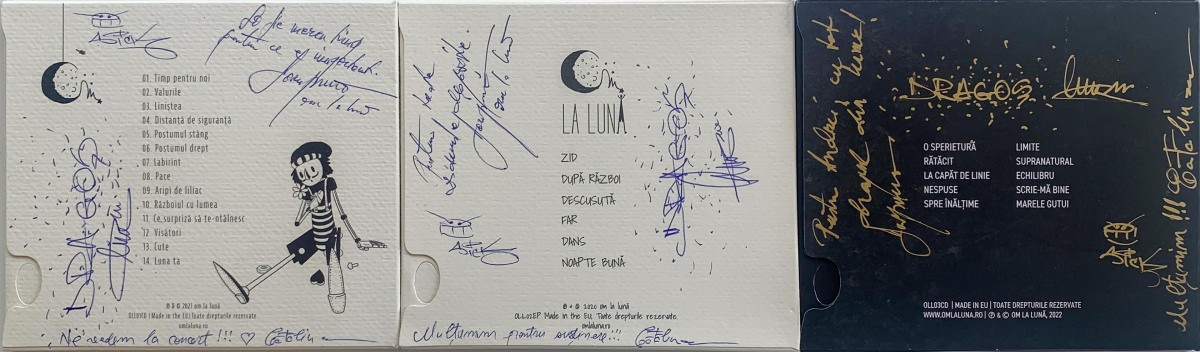 Să fie mereu timp
pentru ce e important.
om la lună
ASTEK
01. Timp pentru noi
02. Valurile
03. Liniștea
04. Distanță de siguranță
05. Postumul stâng
06. Postumul drept
07. Labirint
08. Pace
09. Aripi de liliac
10. Războiul cu lumea
11. Ce surpriză să te-ntâlnesc
12. Visători
13. Cute
14. Luna ta
DRAGOȘ
℗ & © 2021 om la lună
| Made in the EU | Toate drepturile rezervate
omlaluna.ro
Ne vedem la concert!!! ♡ Cătălin
Pentru toate
om la lună
Om
LA LUNĂ
ZID
DUPĂ RĂZBOI
DESCUSUTĂ
FAR
DANS
NOAPTE BUNĂ
DRAGOȘ
ASTEK
℗ & © 2020 om la lună
OLL02EP Made in the EU. Toate drepturile rezervate.
omlaluna.ro
Mulțumim pentru susținere!!! Cătălin
Pentru Andrei cu tot
dragul din
lume!
DRAGOȘ
O SPERIETURĂ
RĂTĂCIT
LA CAPĂT DE LINIE
NESPUSE
SPRE ÎNĂLȚIME
LIMITE
SUPRANATURAL
ECHILIBRU
SCRIE-MĂ BINE
MARELE GUTUI
ASTEK
Mulțumim!!! Cătălin
OLL03CD | MADE IN EU | TOATE DREPTURILE REZERVATE
WWW.OMLALUNA.RO | ℗ & © OM LA LUNĂ, 2022